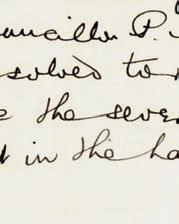 ouncillor P.
solved to
e the seve
t in the ha